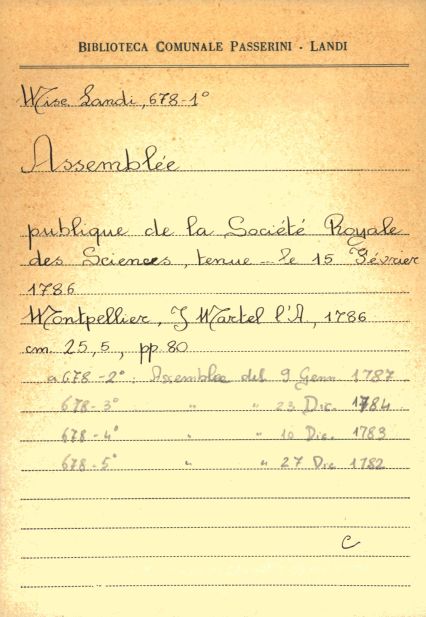 BIBLIOTECA COMUNALE PASSERINI - LANDI
Misc Landi, 678-1°
Assemblée
publique de la Société Royale
des Sciences, tenue - le 15 Février
1786
Montpellier, J Martel l'A, 1786
cm. 25,5, pp. 80
a 678-2° : Assemblée del 9 Genn 1787
678-3° " " 23 Dic. 1784
678-4° " " 10 Dic. 1783
678-5° " " 27 Dic 1782
C